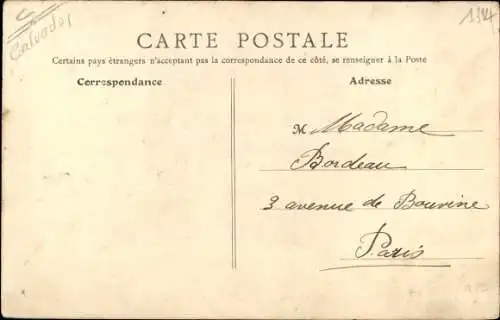 Calvados
CARTE POSTALE
Certains pays étrangers n'acceptant pas la correspondance de ce côté, se renseigner à la Poste
Correspondance
Adresse
M Madame
Bordeau
3 avenue de Bouvine
Paris